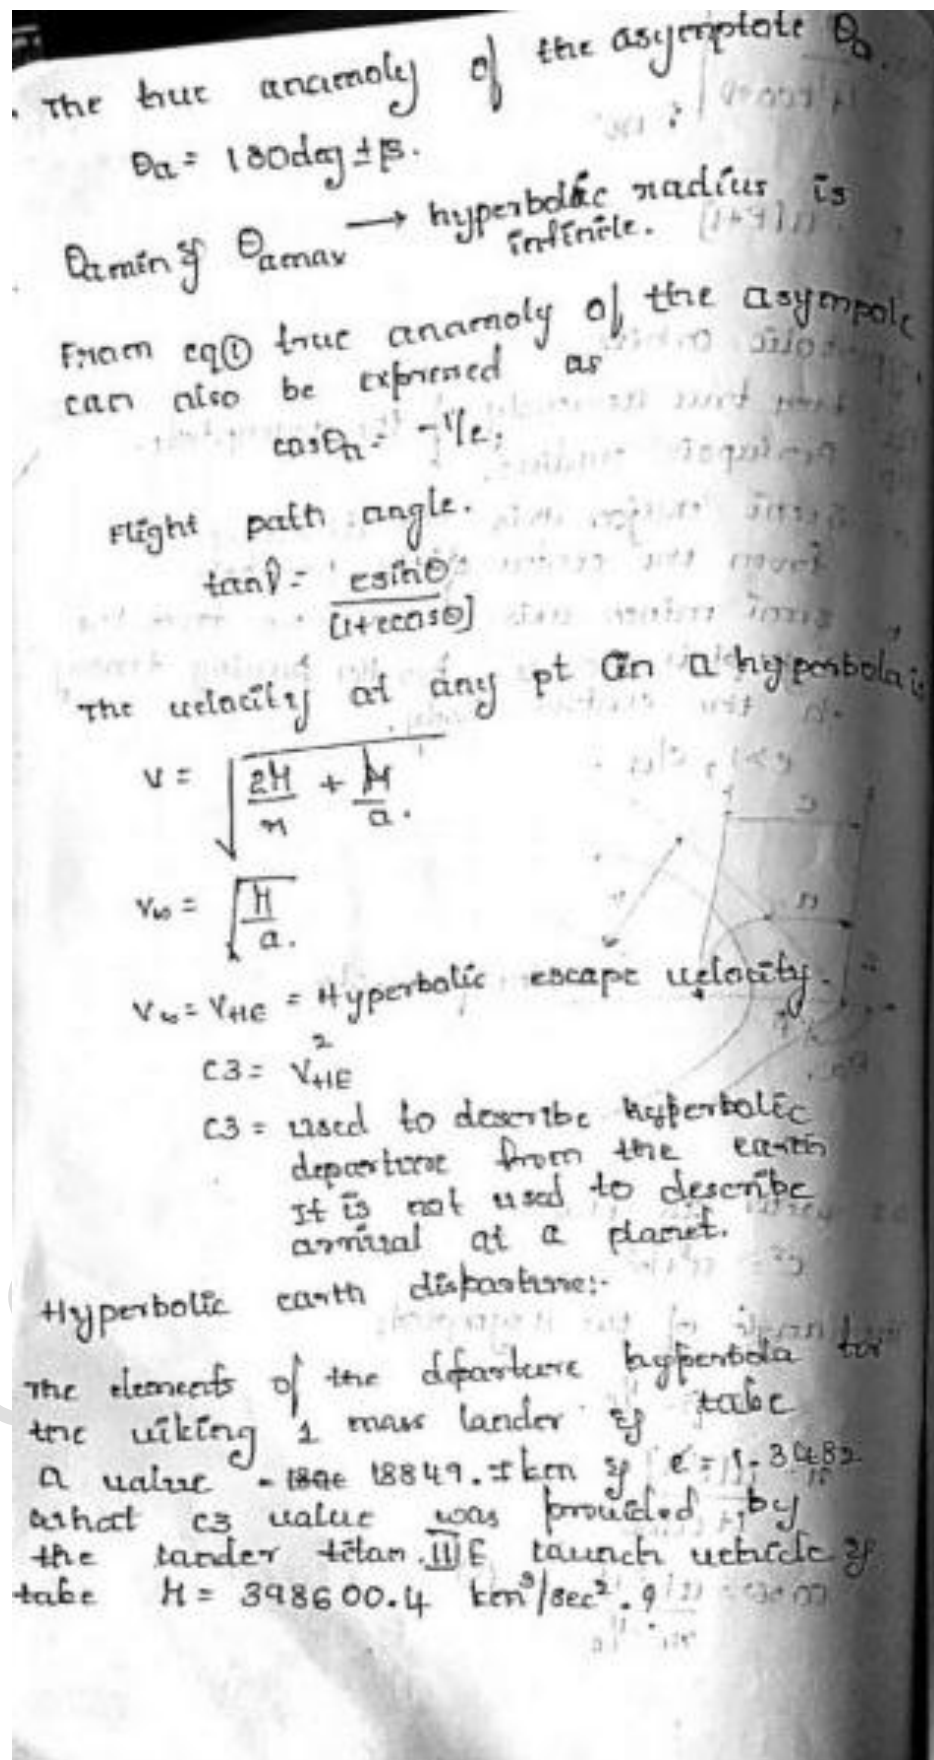 . The true anamoly of the asymptote θa.
θa = 180deg ± β.
θamin & θamax → hyperbolic radius is
infinite.
From eq① true anamoly of the asympote
can also be expressed as
cosθa = -1/e;
Flight path angle.
tanγ = esinθ / [1+ecosθ]
The velocity at any pt on a hyperbola is
V = √(2μ/r + μ/a.)
V∞ = √(μ/a.)
V∞ = VHE = Hyperbolic escape velocity.
C3 = V²HE
C3 = used to describe hyperbolic
departure from the earth
It is not used to describe
arrival at a planet.
Hyperbolic earth disparture:-
The elements of the dparture hyperbola for
the viking 1 mass lander & take
a value - 18849.7km & e = 1.3482
what c3 value was provided by
the lander titan III E launch vehicle &
take μ = 398600.4 km³/sec².